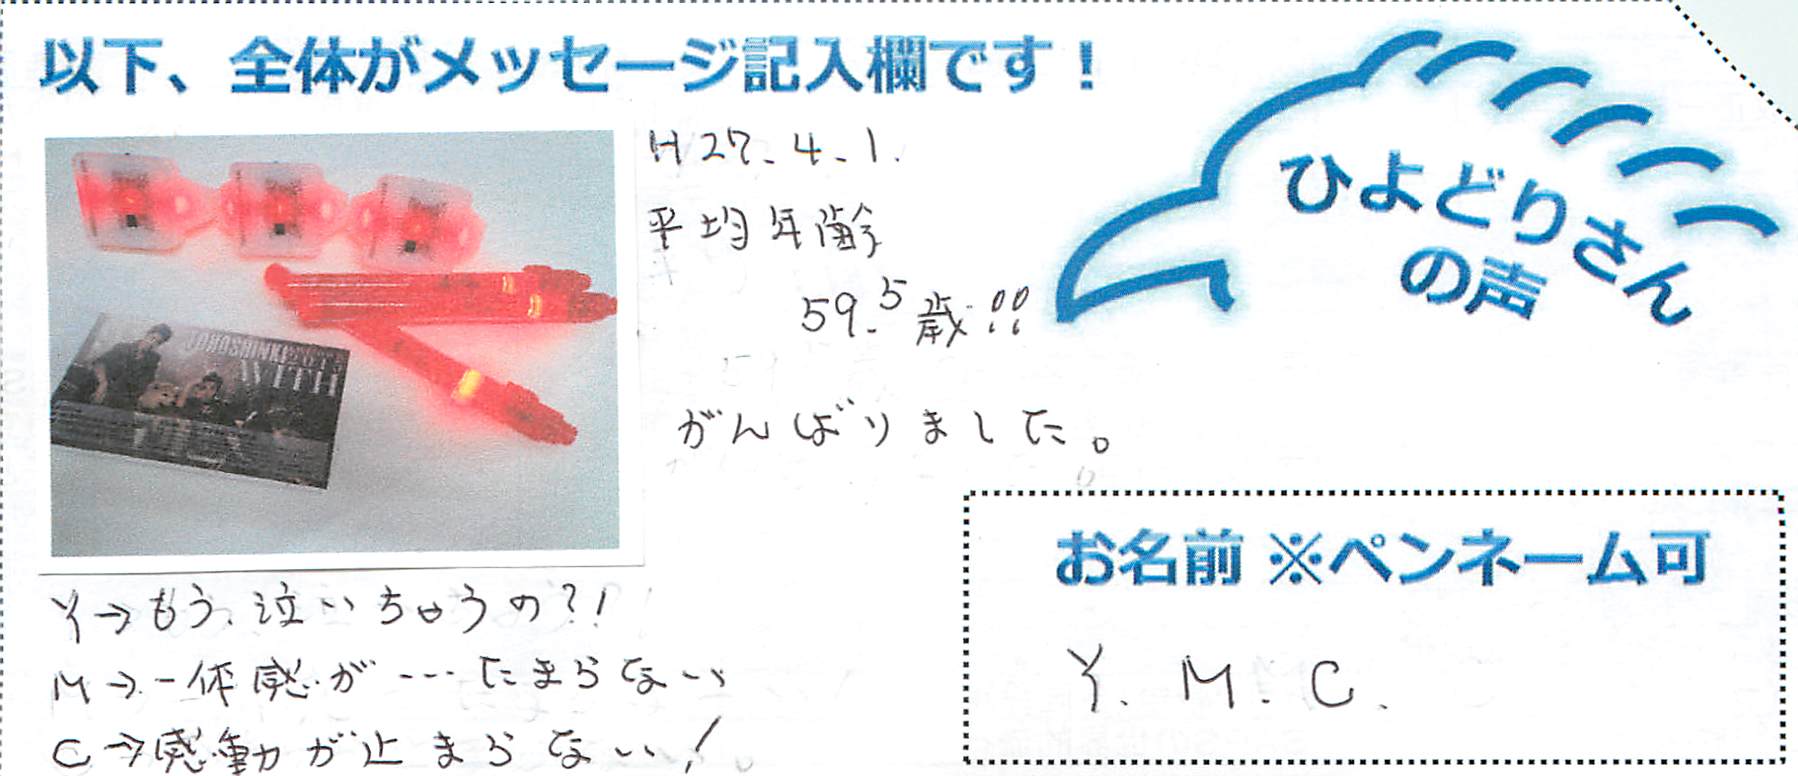 以下、全体がメッセージ記入欄です！
H27.4.1.
平均年齢
59.5歳!!
がんばりました。
ひよどりさん
の声
TOHOSHINKI
WITH
Y→もう、泣いちゃうの?!
M→一体感が…たまらない
C→感動が止まらない!
お名前 ※ペンネーム可
Y. M. C.